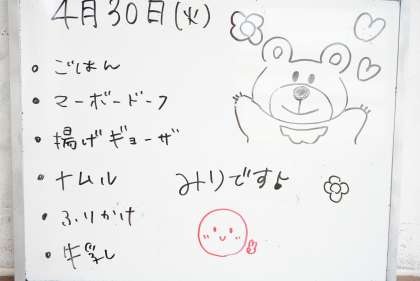 4月30日(火)
・ごはん
・マーボードーフ
・揚げギョーザ
・ナムル
・ふりかけ
・牛乳
みりです♪